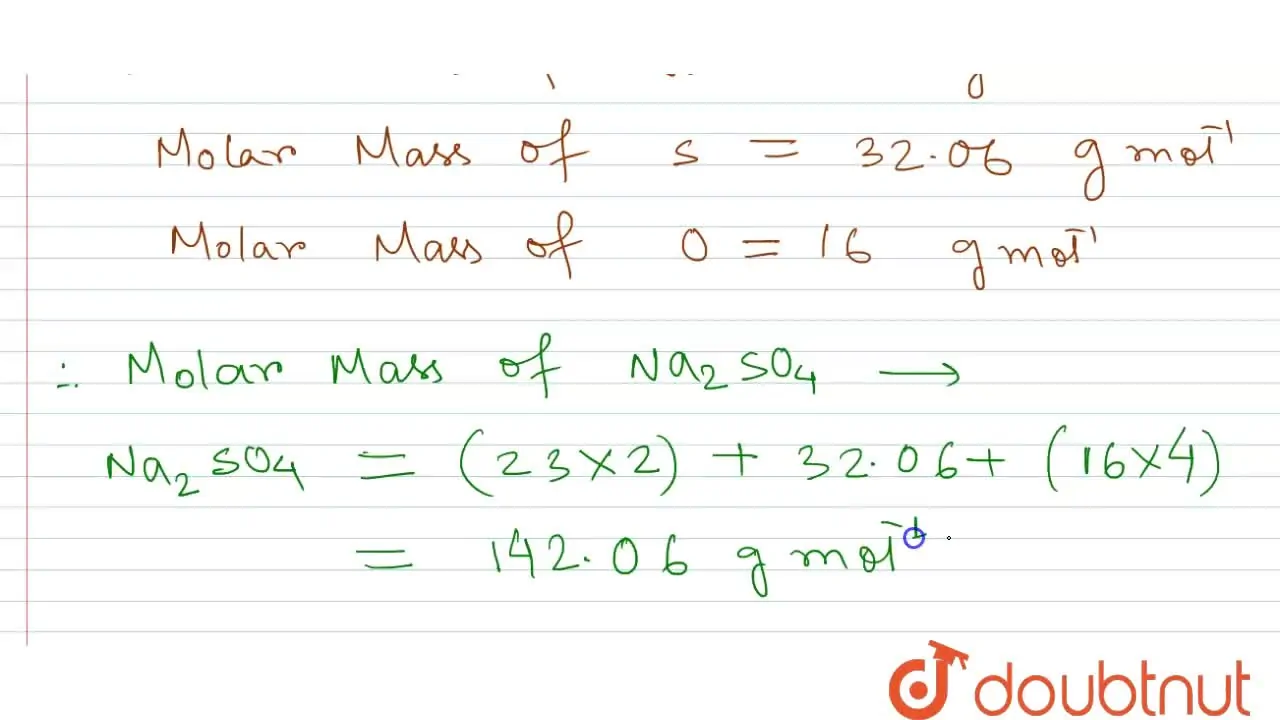 Molar Mass of S = 32.06 g mol⁻¹
Molar Mass of O = 16 g mol⁻¹
∴ Molar Mass of Na₂SO₄ ⟶
Na₂SO₄ = (23×2) + 32.06 + (16×4)
= 142.06 g mol⁻¹
doubtnut